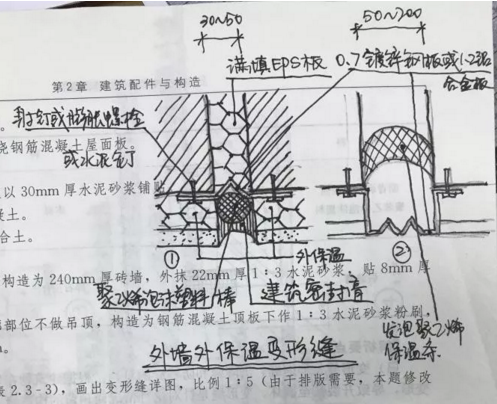 30~50
50~200
满填EPS板
0.7镀锌钢板或1.2铝
合金板
第2章 建筑配件与构造
射钉或膨胀螺栓
浇钢筋混凝土屋面板。
或水泥钉
以30mm厚水泥砂浆铺贴
凝土。
合土。
①
外保温
②
构造为240mm厚砖墙，外抹22mm厚1：3水泥砂浆，贴8mm厚
聚乙烯泡沫塑料棒
建筑密封膏
部位不做吊顶，构造为钢筋混凝土顶板下作1：3水泥砂浆粉刷，
发泡聚乙烯
保温条
外墙外保温变形缝
表2.3-3），画出变形缝详图，比例1：5（由于排版需要，本题修改